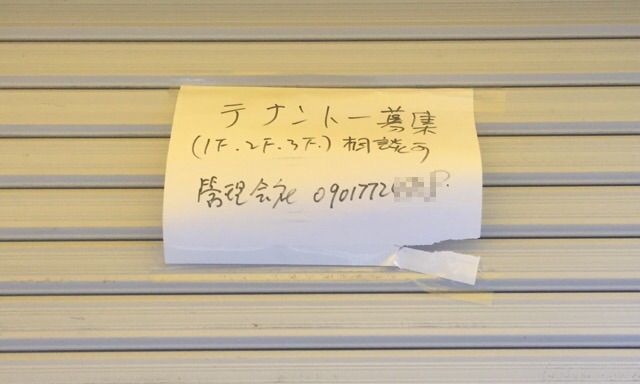 テナントー募集
(1F.2F.3F.)相談可
管理会社 0901772